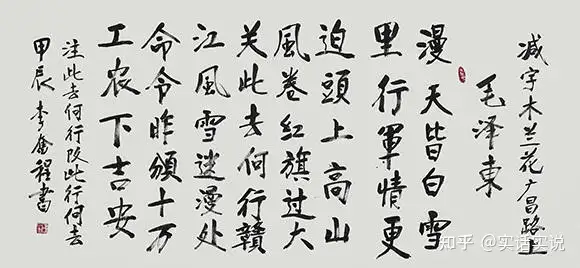 减字木兰花广昌路上
毛泽東
漫天皆白雪
里行軍情更
迫頭上高山
風卷红旗过大
关此去何行贛
江風雪迷漫处
命令昨頒十万
工农下吉安
注此去何行改此行何去
甲辰 李奮程書
知乎 @实话实说